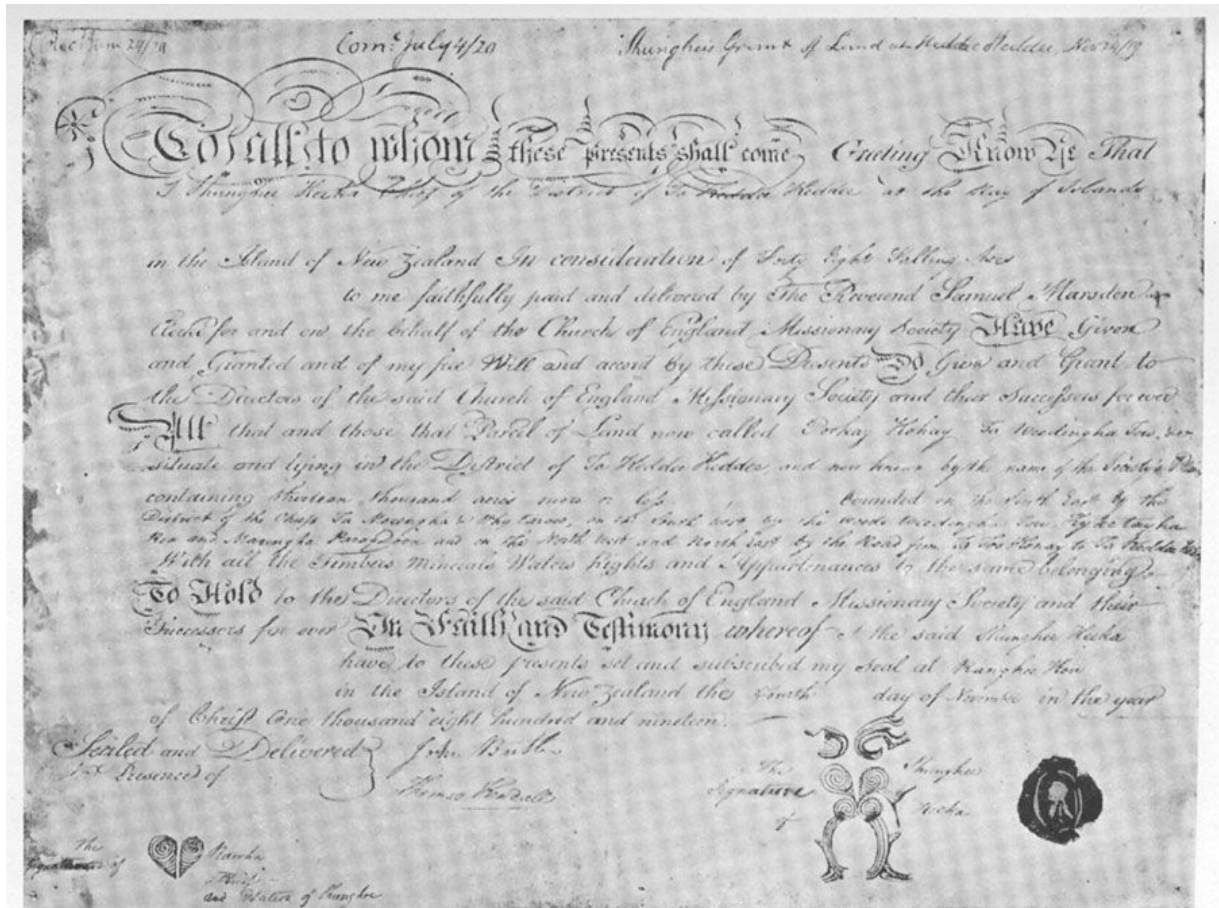 Com.e July 4/20
Shunghee's Grant of Land at Keddee Keddee, Nov 24/19
To all to whom these presents shall come Greeting Know Ye That
I Shunghee Heeka Chief of the District of Ta Keddee Keddee at the Bay of Islands
in the Island of New Zealand In consideration of Forty Eight Falling Axes
to me faithfully paid and delivered by The Reverend Samuel Marsden
for and on the behalf of the Church of England Missionary Society Have Given
and Granted and of my free Will and accord by these Presents Do Give and Grant to
the Directors of the said Church of England Missionary Society and their Successors for ever
All that and those that Parcel of Land now called
situate and lying in the District of Ta Keddee Keddee, and now known by the name of the Society's
containing thirteen thousand acres more or less bounded on the South East by the
District of the Chiefs on the South West by the woods
and on the North West and North East by the Road from to Ta Keddee
With all the Timbers Minerals Waters Rights and Appurtenances to the same belonging
To Hold to the Directors of the said Church of England Missionary Society and their
Successors for ever In Faith and Testimony whereof I the said Shunghee Heeka
have to these presents set and subscribed my Seal at Ranghee Hoo
in the Island of New Zealand the Fourth day of November in the year
of Christ One thousand eight hundred and nineteen.
Sealed and Delivered
In Presence of
John Butler
Thomas Kendall
The Signature of
Shunghee
Heeka
The
Signature of
Rawha
Chief
and Relation of Shunghee